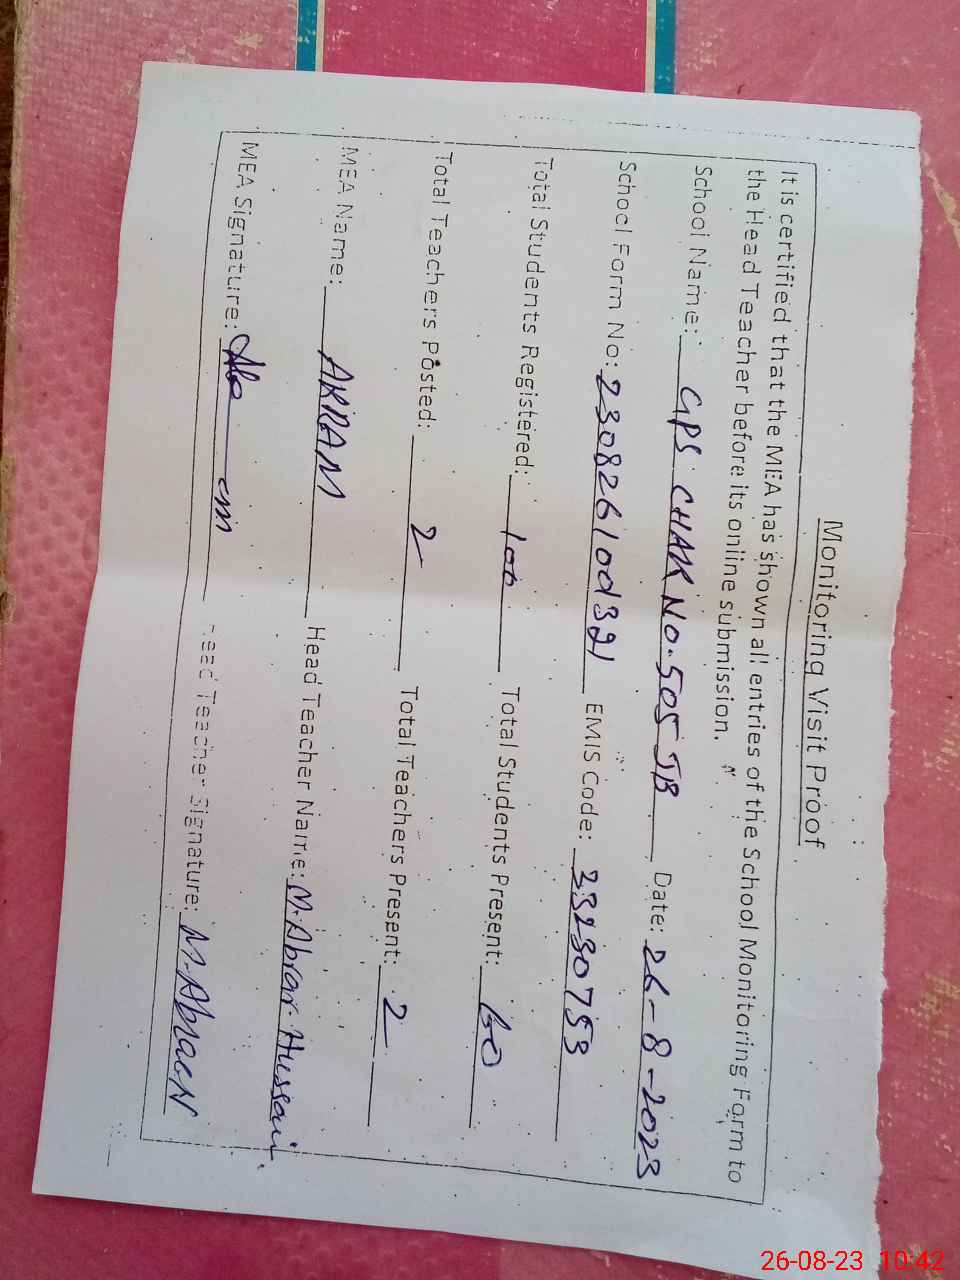 Monitoring Visit Proof
It is certified that the MEA has shown all entries of the School Monitoring Form to
the Head Teacher before its online submission.
School Name: GPS CHAK NO. 505 JB Date: 26-8-2023
School Form No: EMIS Code: 33230753
Total Students Registered: 100 Total Students Present:
Total Teachers Posted: 2 Total Teachers Present: 2
MEA Name: AKRAM Head Teacher Name: M. Abrar Hussain
MEA Signature: Head Teacher Signature: M. Abrar
26-08-23 10:42